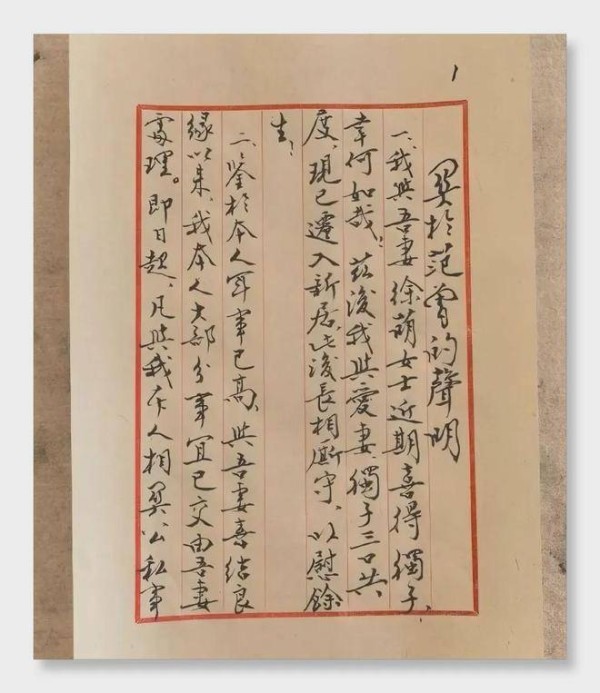 1
關於范曾的聲明
一、我與吾妻徐萌女士近期喜得獨子,
幸何如哉!茲後我與愛妻、獨子三口共
度,現已遷入新居,此後長相廝守,以慰餘
生!
二、鑒於本人年事已高,與吾妻喜結良
緣以來,我本人大部分事宜已交由吾妻
處理。即日起,凡與我本人相關公私事